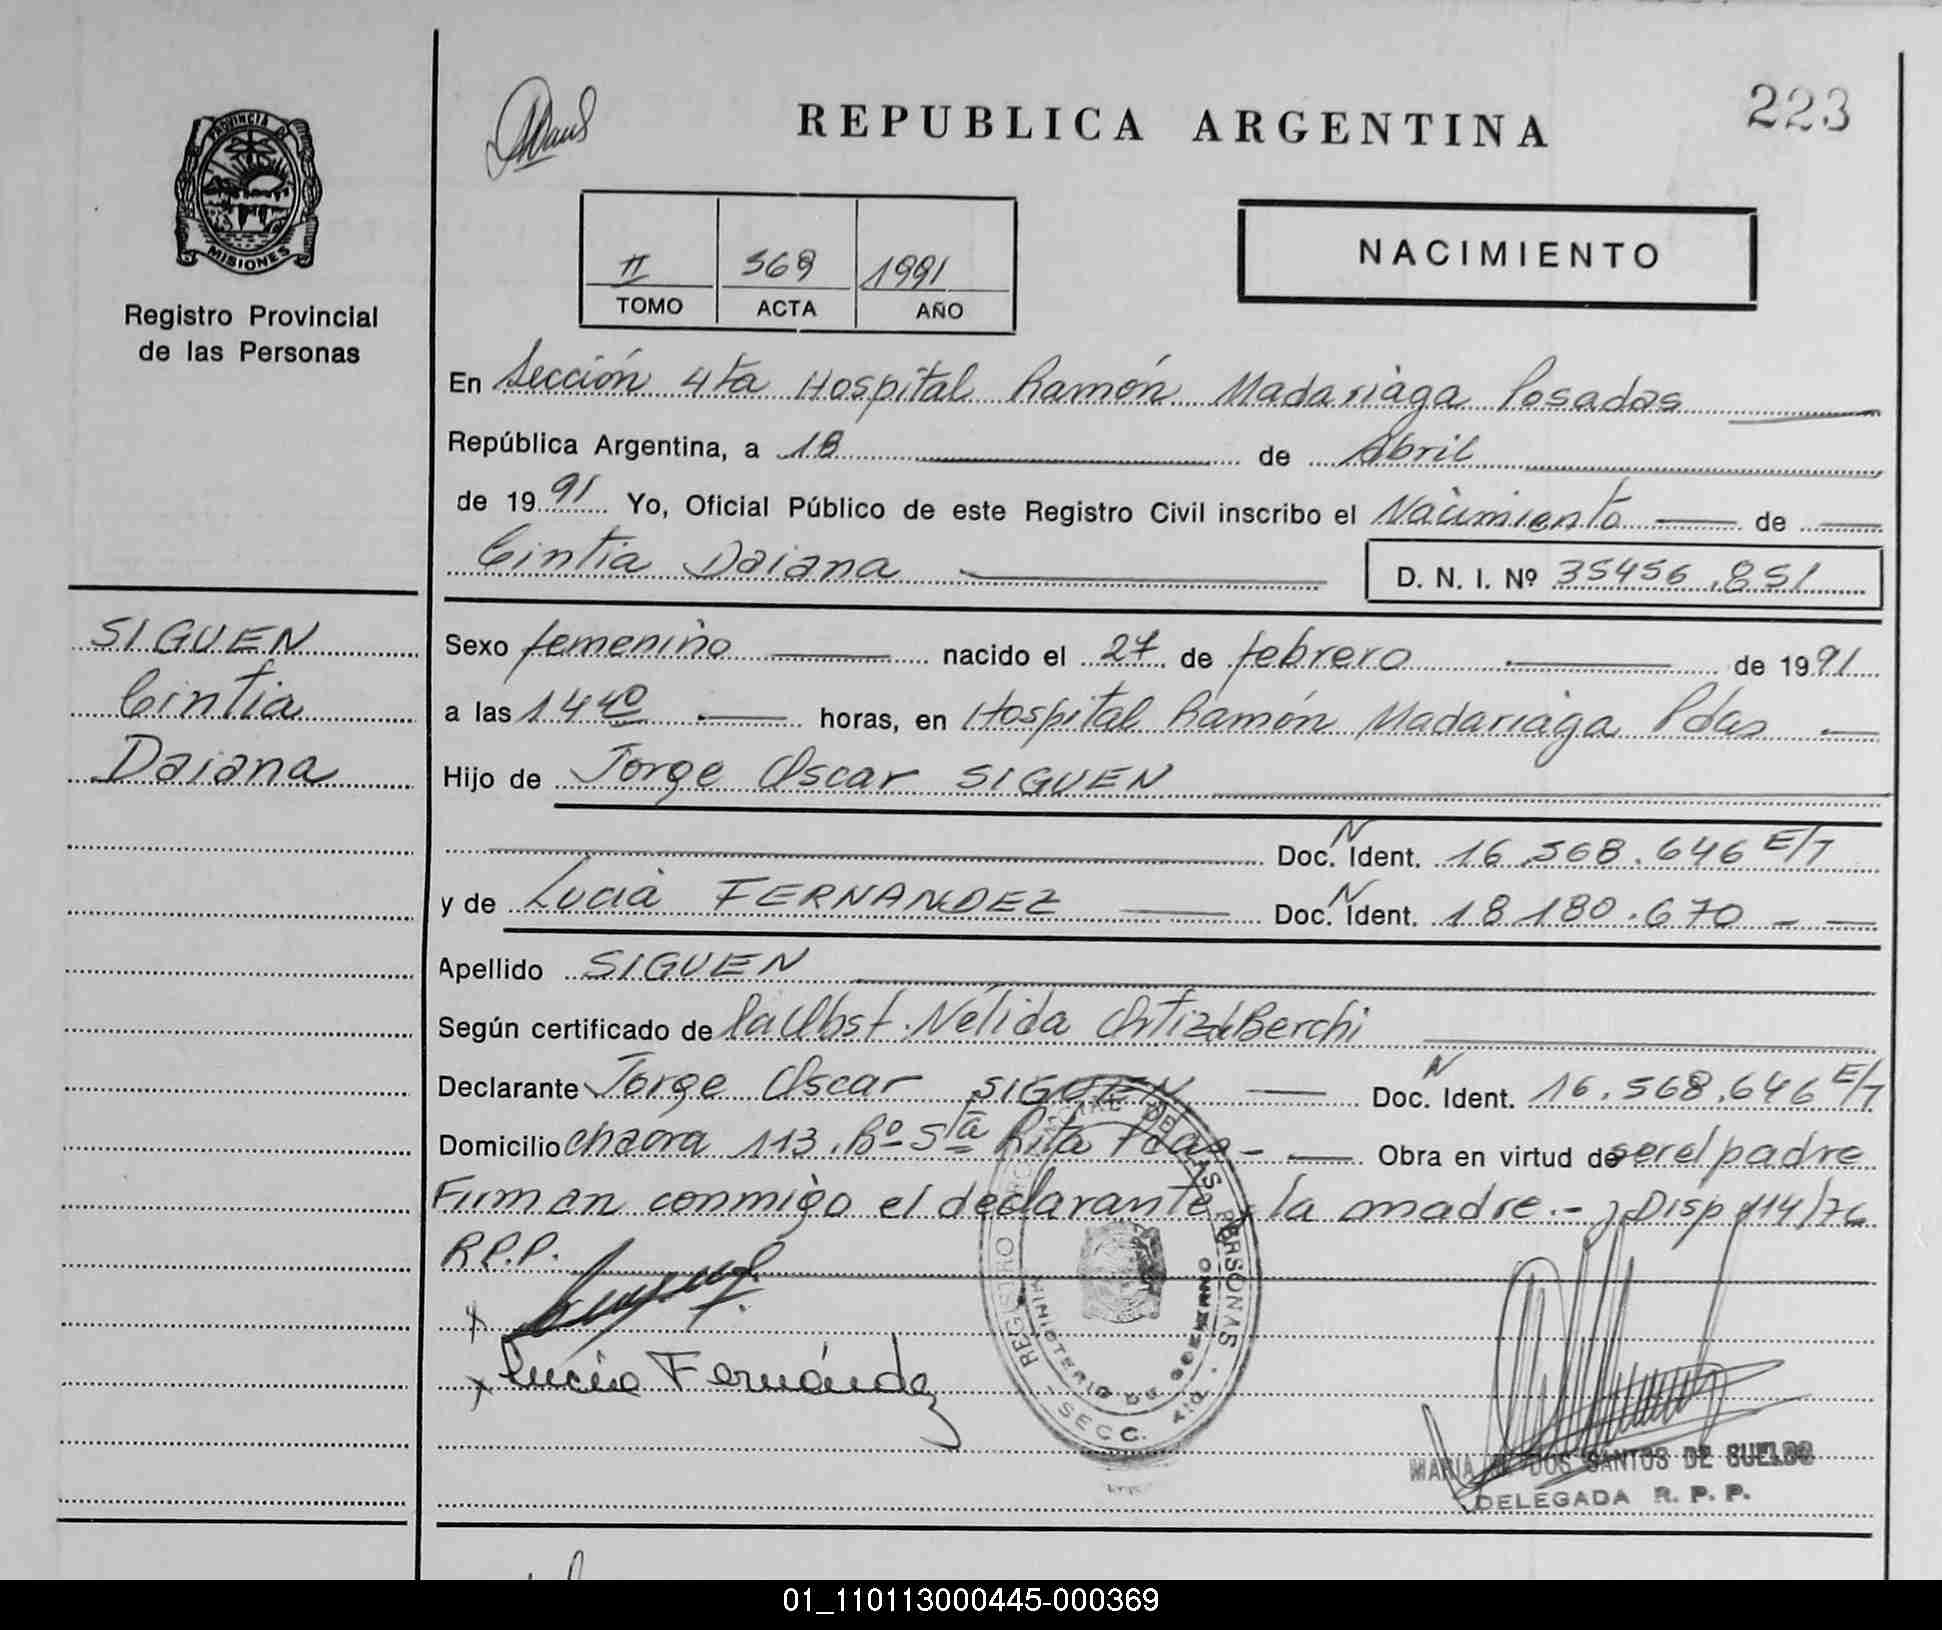 REPUBLICA ARGENTINA
223
PROVINCIA DE
MISIONES
Registro Provincial
de las Personas
II 369 1991
TOMO ACTA AÑO
NACIMIENTO
En Sección 4ta Hospital Ramón Madariaga Posadas
República Argentina, a 18 de Abril
de 1991 Yo, Oficial Público de este Registro Civil inscribo el Nacimiento de
Cintia Daiana D. N. I. Nº 35456.851
SIGUEN
Cintia
Daiana
Sexo femenino nacido el 27 de febrero de 1991
a las 14 40 horas, en Hospital Ramón Madariaga Pdas
Hijo de Jorge Oscar SIGUEN
Doc. N Ident. 16.568.646 E/T
y de Lucia FERNANDEZ Doc. N Ident. 18.180.670 -
Apellido SIGUEN
Según certificado de la Obst. Nélida Ortiz de Berchi
Declarante Jorge Oscar SIGUEN Doc. N Ident. 16.568.646 E/T
Domicilio chacra 113. Bº Sta Rita Pdas - Obra en virtud de ser el padre
Firman conmigo el declarante y la madre.- Disp 114/76
R.P.P.
x
x Lucia Fernández
REGISTRO PROVINCIAL DE LAS PERSONAS
MINISTERIO DE GOBIERNO
SECC. 4ta.
MARIA DOS SANTOS DE SUELDO
DELEGADA R. P. P.
01_110113000445-000369